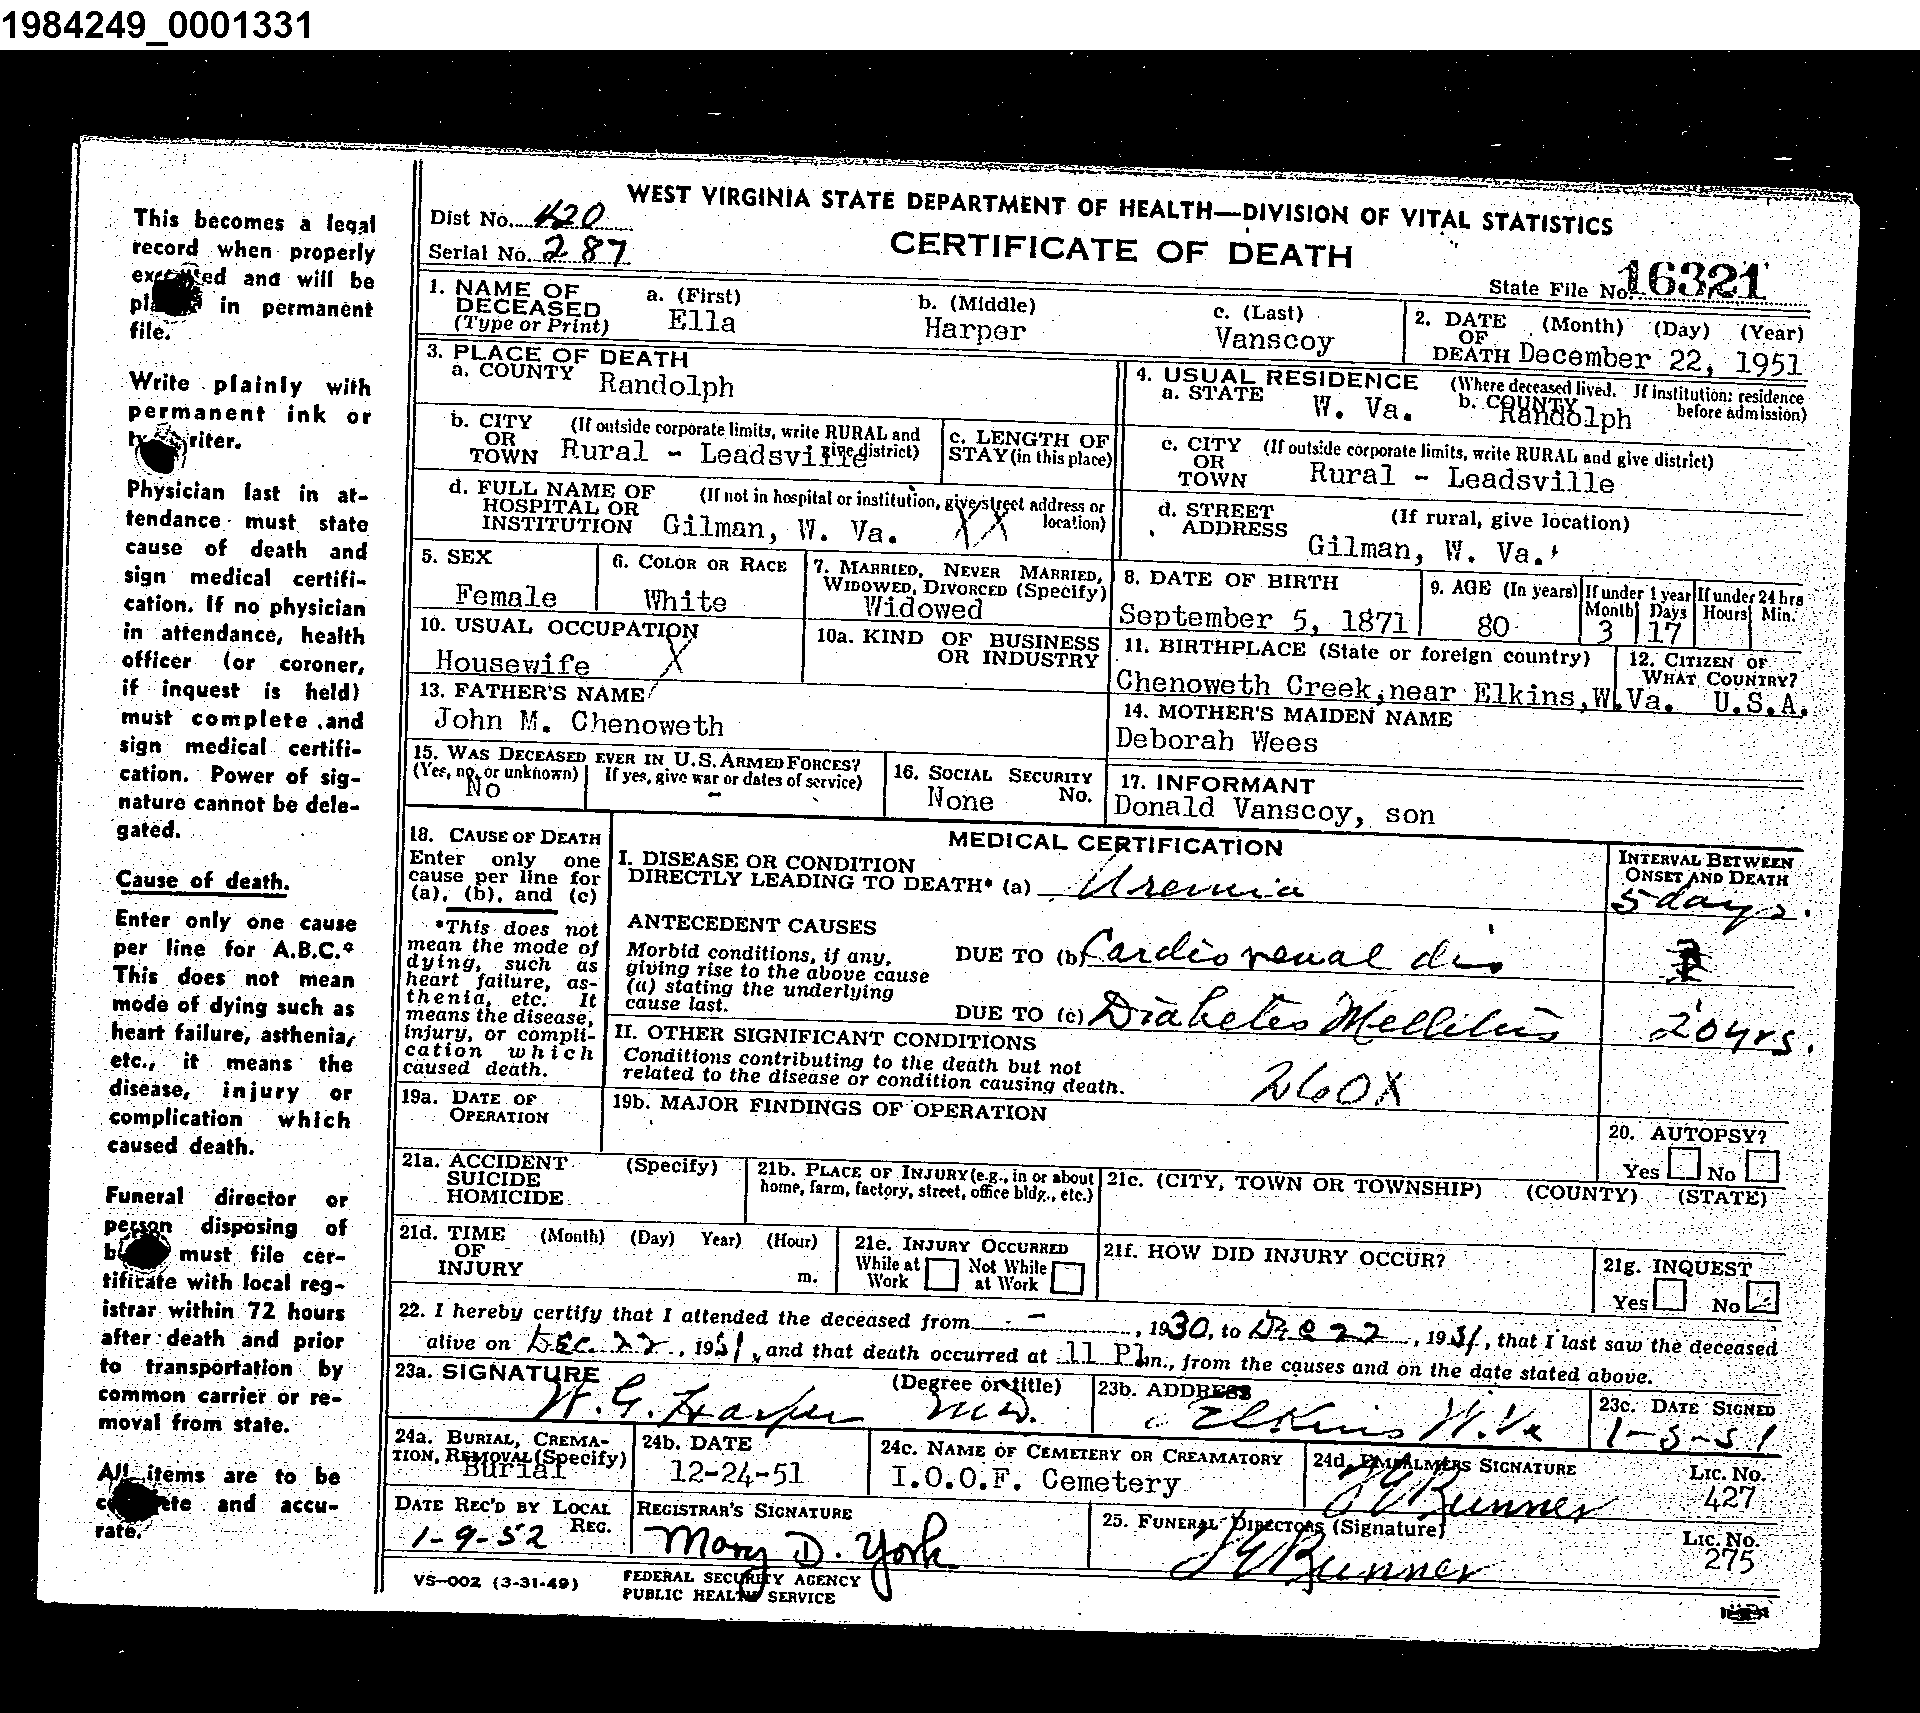 1984249_0001331
This becomes a legal
record when properly
ex ed and will be
pl in permanent
file.
Write plainly with
permanent ink or
riter.
Physician last in at-
tendance must state
cause of death and
sign medical certifi-
cation. If no physician
in attendance, health
officer (or coroner,
if inquest is held)
must complete and
sign medical certifi-
cation. Power of sig-
nature cannot be dele-
gated.
Cause of death.
Enter only one cause
per line for A.B.C.*
This does not mean
mode of dying such as
heart failure, asthenia,
etc., it means the
disease, injury or
complication which
caused death.
Funeral director or
person disposing of
b must file cer-
tificate with local reg-
istrar within 72 hours
after death and prior
to transportation by
common carrier or re-
moval from state.
All items are to be
c ete and accu-
rate.
WEST VIRGINIA STATE DEPARTMENT OF HEALTH—DIVISION OF VITAL STATISTICS
Dist No. 420
Serial No. 287
CERTIFICATE OF DEATH
State File No. 16321
1. NAME OF DECEASED (Type or Print) a. (First) Ella b. (Middle) Harper c. (Last) Vanscoy
2. DATE OF DEATH (Month) (Day) (Year) December 22, 1951
3. PLACE OF DEATH
a. COUNTY Randolph
4. USUAL RESIDENCE (Where deceased lived. If institution: residence before admission)
a. STATE W. Va. b. COUNTY Randolph
b. CITY OR TOWN (If outside corporate limits, write RURAL and give district) Rural - Leadsville
c. LENGTH OF STAY (in this place)
c. CITY OR TOWN (If outside corporate limits, write RURAL and give district) Rural - Leadsville
d. FULL NAME OF HOSPITAL OR INSTITUTION (If not in hospital or institution, give street address or location) Gilman, W. Va. XX
d. STREET ADDRESS (If rural, give location) Gilman, W. Va.
5. SEX Female
6. COLOR OR RACE White
7. MARRIED, NEVER MARRIED, WIDOWED, DIVORCED (Specify) Widowed
8. DATE OF BIRTH September 5, 1871
9. AGE (In years) 80 If under 1 year Month 3 Days 17 If under 24 hrs Hours Min.
10. USUAL OCCUPATION Housewife X
10a. KIND OF BUSINESS OR INDUSTRY
11. BIRTHPLACE (State or foreign country) Chenoweth Creek, near Elkins, W. Va.
12. CITIZEN OF WHAT COUNTRY? U.S.A.
13. FATHER'S NAME John M. Chenoweth
14. MOTHER'S MAIDEN NAME Deborah Wees
15. WAS DECEASED EVER IN U.S. ARMED FORCES? (Yes, no, or unknown) No If yes, give war or dates of service) -
16. SOCIAL SECURITY No. None
17. INFORMANT Donald Vanscoy, son
18. CAUSE OF DEATH
Enter only one cause per line for (a), (b), and (c)
*This does not mean the mode of dying, such as heart failure, asthenia, etc. It means the disease, injury, or complication which caused death.
MEDICAL CERTIFICATION
INTERVAL BETWEEN ONSET AND DEATH
I. DISEASE OR CONDITION DIRECTLY LEADING TO DEATH* (a) Uremia 5 days.
ANTECEDENT CAUSES
Morbid conditions, if any, giving rise to the above cause (a) stating the underlying cause last.
DUE TO (b) Cardio renal dis
DUE TO (c) Diabetes Mellitus 20 yrs.
II. OTHER SIGNIFICANT CONDITIONS
Conditions contributing to the death but not related to the disease or condition causing death.
260X
19a. DATE OF OPERATION
19b. MAJOR FINDINGS OF OPERATION
20. AUTOPSY? Yes No
21a. ACCIDENT SUICIDE HOMICIDE (Specify)
21b. PLACE OF INJURY (e.g., in or about home, farm, factory, street, office bldg., etc.)
21c. (CITY, TOWN OR TOWNSHIP) (COUNTY) (STATE)
21d. TIME OF INJURY (Month) (Day) Year) (Hour) m.
21e. INJURY OCCURRED While at Work Not While at Work
21f. HOW DID INJURY OCCUR?
21g. INQUEST Yes No
22. I hereby certify that I attended the deceased from - , 1930, to Dec 22, 1951, that I last saw the deceased
alive on Dec. 22, 1951, and that death occurred at 11 P m., from the causes and on the date stated above.
23a. SIGNATURE (Degree or title) W. G. Harper M.D.
23b. ADDRESS Elkins W. Va
23c. DATE SIGNED 1-5-51
24a. BURIAL, CREMATION, REMOVAL (Specify) Burial
24b. DATE 12-24-51
24c. NAME OF CEMETERY OR CREAMATORY I.O.O.F. Cemetery
24d. EMBALMERS SIGNATURE Runner LIC. NO. 427
DATE REC'D BY LOCAL REG. 1-9-52
REGISTRAR'S SIGNATURE Mary D. York
25. FUNERAL DIRECTORS (Signature) Runner LIC. NO. 275
VS-002 (3-31-49)
FEDERAL SECURITY AGENCY
PUBLIC HEALTH SERVICE